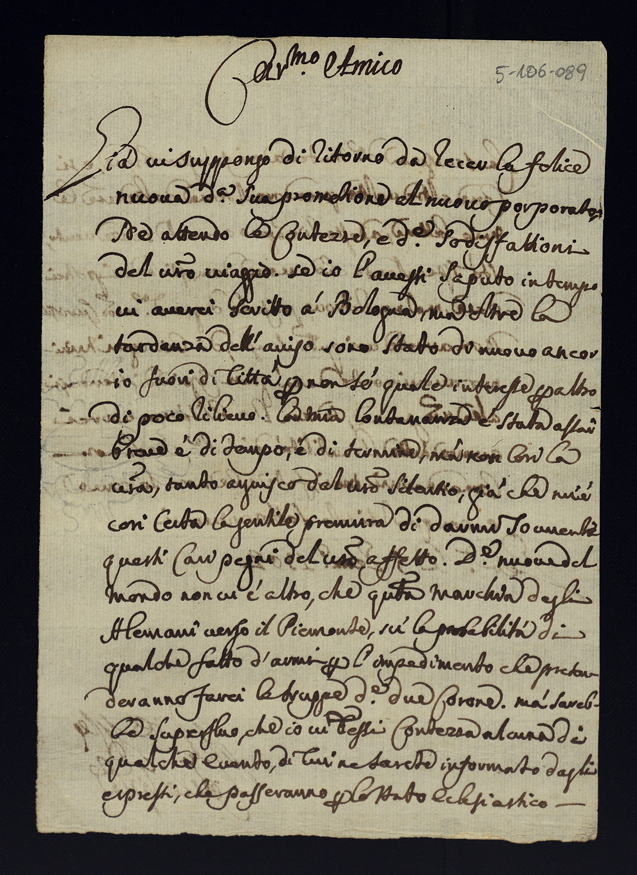 Car.mo Amico
5-106-089
Già vi suppongo di ritorno da recar la felice
nuova d.a Sua promotione al nuovo porporato,
Ne attendo le Contezze, e d.e Sodisfattioni
del vro viaggio. se io l'avessi saputo in tempo
vi averei scritto à Bologna, mà oltre la
tardanza dell'aviso sono stato di nuovo ancor
io fuori di Città p non sò quale interesse p altro
di poco rilievo. la mia lontananza è stata assai
breve é di tempo, é di termine, mà non così la
vra, tanto capisco dal vro silentio, già che m'è
così certa la gentile premura di darmi
questi cari pegni del vro affetto. D.e nuove del
mondo non vi é altro, che questa marchia degli
Alemani verso il Piemonte, si è la probabilità di
qualche fatto d'armi p l'impedimento che preten-
deranno farci le truppe d.e due Corone. mà sareb-
be superfluo, che io vi dessi Contezza alcuna di
qualche evento, di cui ne sarete informato dagli
espressi, che passeranno p lo Stato Eclesiastico —